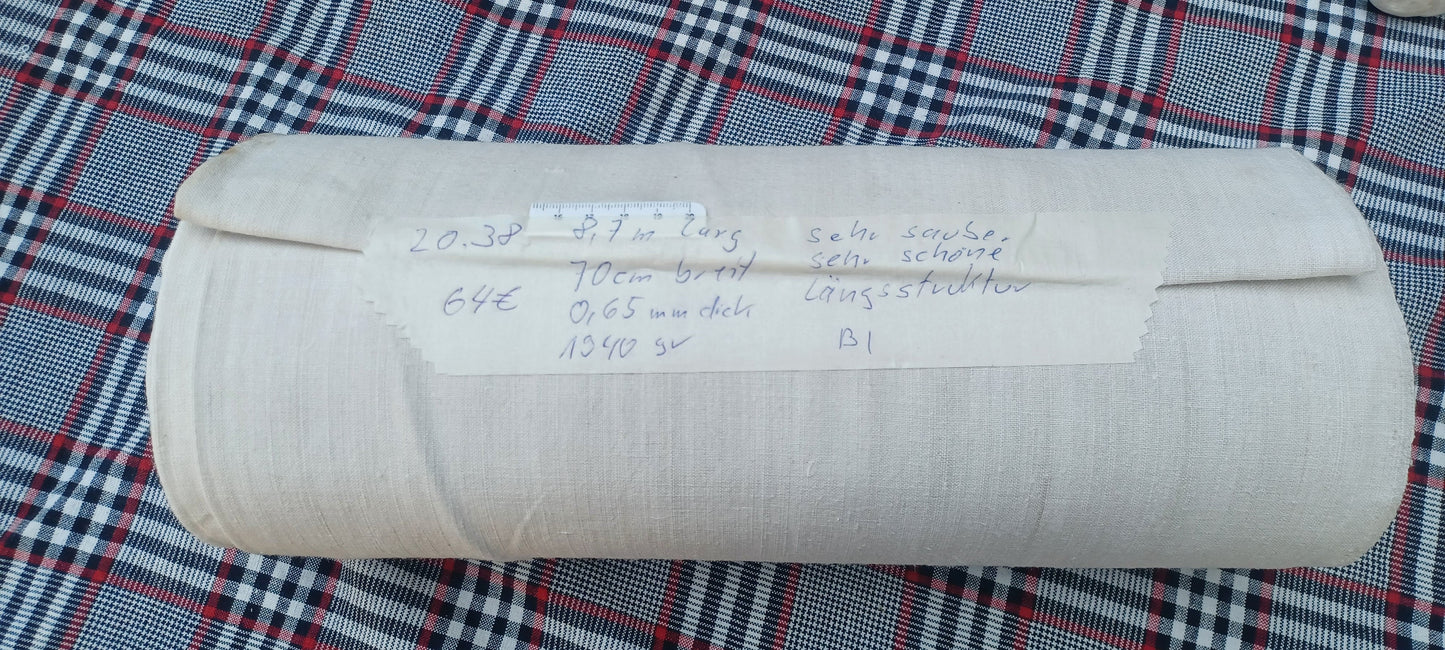 20.38
64€
8,7 m lang
70cm breit
0,65 mm dick
1940 gr
sehr sauber
sehr schöne
längsstruktur
B1